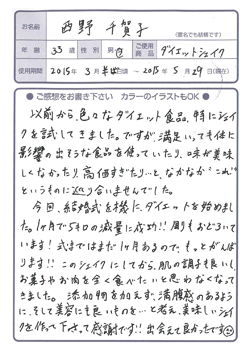 お名前 西野 千賀子
(匿名でも結構です)
年齢 33歳 性別 男・女 ご使用商品 ダイエットシェイク
使用期間 2015年3月半頃 ～ 2015年5月29日(現在)
●ご感想をお書き下さい カラーのイラストもOK●
以前から色々なダイエット食品、特にシェイ
クを試してきました。ですが、満足いっても体に
影響の出そうな食品を使っていたり、味が美味
しくなかったり、高価すぎたり…と、なかなか“これ”
というものに巡り合いませんでした。
今回、結婚式を機に、ダイエットを始めまし
た。1ヶ月で5キロの減量に成功!!周りもおどろいて
います!式まではまだ1ヶ月あるので、もっとがんば
ります!!このシェイクにしてから、肌の調子も良いし、
お菓子やお肉を全く食べたいと思わなくなって
きました。添加物を加えず、満腹感のあるよう
に、そして美容にも良いものを…と考え、美味しいシェイ
クを作って下さって感謝です!!出会えて良かったです